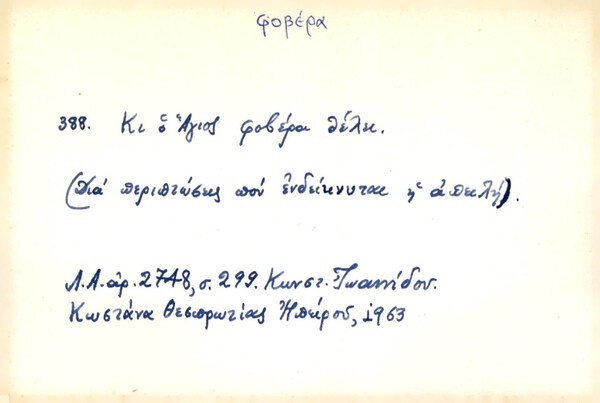 φοβέρα
388. Κι ὁ Ἅγιος φοβέρα θέλει.
(Διά περιπτώσεις πού ἐνδείκνυται ἡ ἀπειλή).
Λ.Α. ἀρ. 2748, σ. 299. Κωνστ. Ἰωαννίδου.
Κωστάνα Θεσπρωτίας Ἠπείρου, 1963